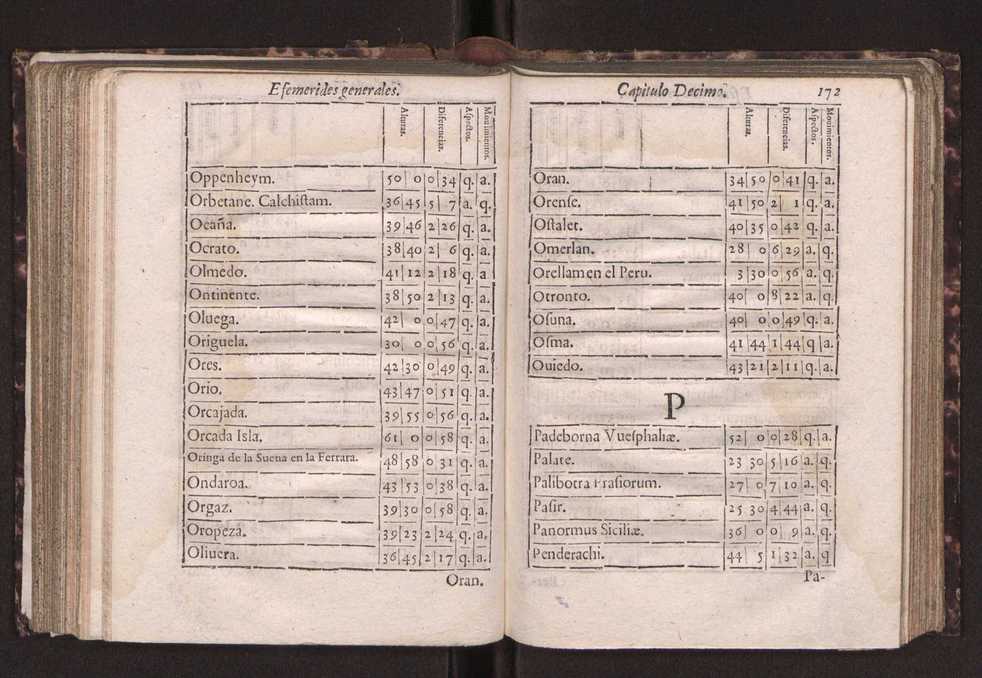 Efemerides generales.
Alturas. Diferencias. Aspectos. Mouimientos.
Oppenheym. 50 0 0 34 q. a.
Orbetane. Calchistam. 36 45 5 7 a. q.
Ocaña. 39 46 2 26 q. a.
Ocrato. 38 40 2 6 q. a.
Olmedo. 41 12 2 18 q. a
Ontinente. 38 50 2 13 q. a.
Oluega. 42 0 0 47 q. a.
Origuela. 30 0 0 56 q. a.
Ores. 42 30 0 49 q. a.
Orio. 43 47 0 51 q. a.
Orcajada. 39 55 0 56 q. a.
Orcada Isla. 61 0 0 58 q. a.
Oringa de la Suena en la Ferrara. 48 58 0 31 q. a.
Ondaroa. 43 53 0 38 q. a.
Orgaz. 39 30 0 58 q. a.
Oropeza. 39 23 2 24 q. a.
Oliuera. 36 45 2 17 q. a.
Oran.
Capitulo Decimo. 172
Alturas. Diferencias. Aspectos. Mouimientos.
Oran. 34 50 0 41 q. a.
Orense. 41 50 2 1 q. a.
Ostalet. 40 35 0 42 q. a.
Omerlan. 28 0 6 29 a. q.
Orellam en el Peru. 3 30 0 56 a. q.
Otronto. 40 0 8 22 a. q.
Osuna. 40 0 0 49 q. a.
Osma. 41 44 1 44 q a.
Ouiedo. 43 21 2 11 q. a.
P
Padeborna Vuesphaliæ. 52 0 0 28 q. a.
Palate. 23 30 5 16 a. q.
Palibotra Frasiorum. 27 0 7 10 a. q.
Pasir. 25 30 4 44 a. q.
Panormus Siciliæ. 36 0 0 9 a. q.
Penderachi. 44 5 1 32 a. q
Pa-